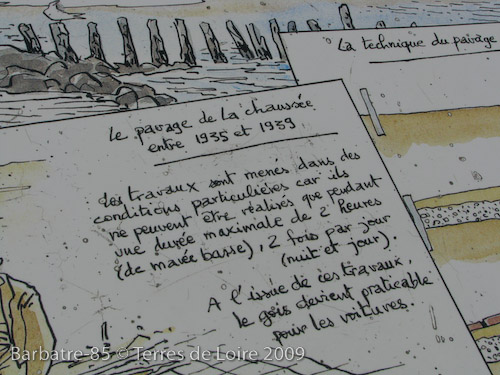 La technique du pavage
Le pavage de la chaussée
entre 1935 et 1939
Les travaux sont menés dans des
conditions particulières car ils
ne peuvent être réalisés que pendant
une durée maximale de 2 heures
(de marée basse), 2 fois par jour
(nuit et jour).
A l'issue de ces travaux,
le gois devient praticable
pour les voitures.
Barbatre-85 © Terres de Loire 2009